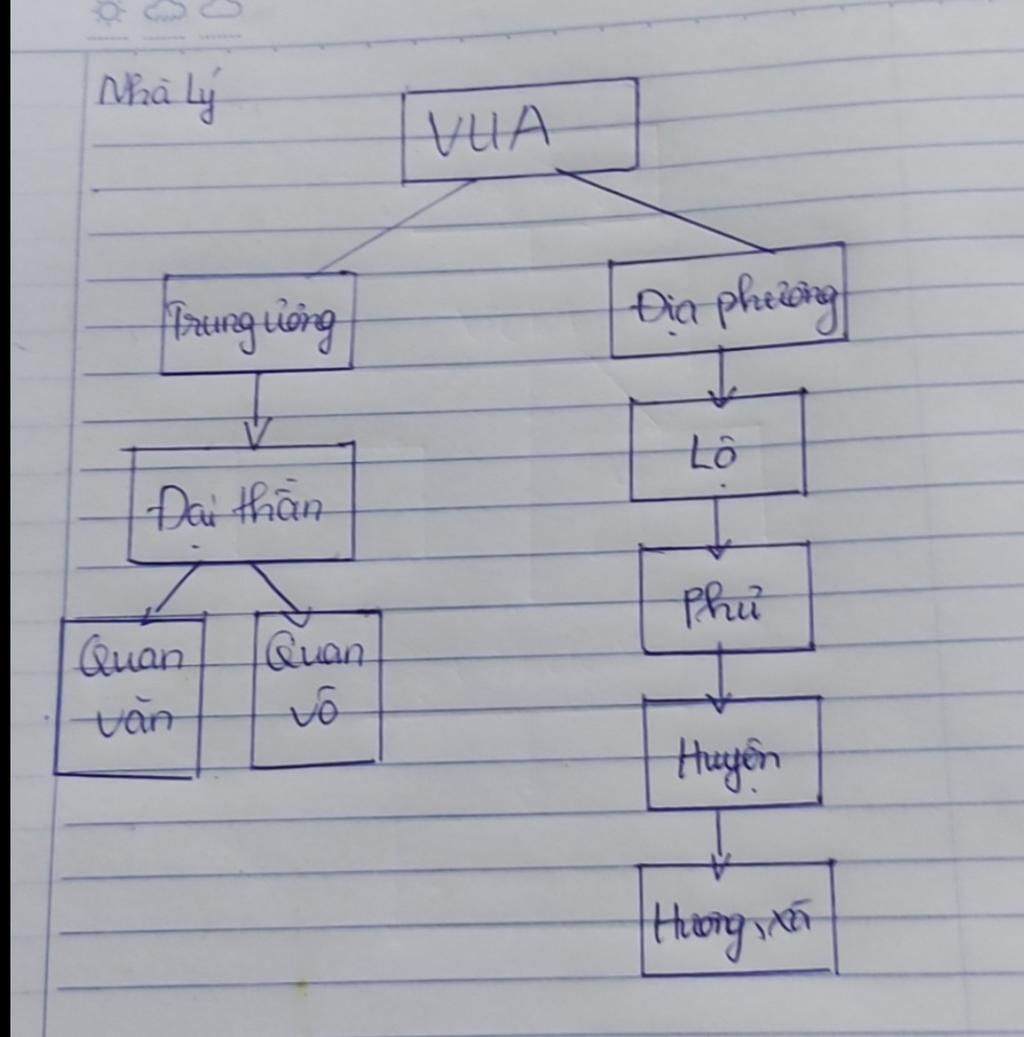 Nhà Lý
VUA
Trung ương
Địa phương
Đại thần
Lộ
Phủ
Quan
văn
Quan
võ
Huyện
Hương, xã